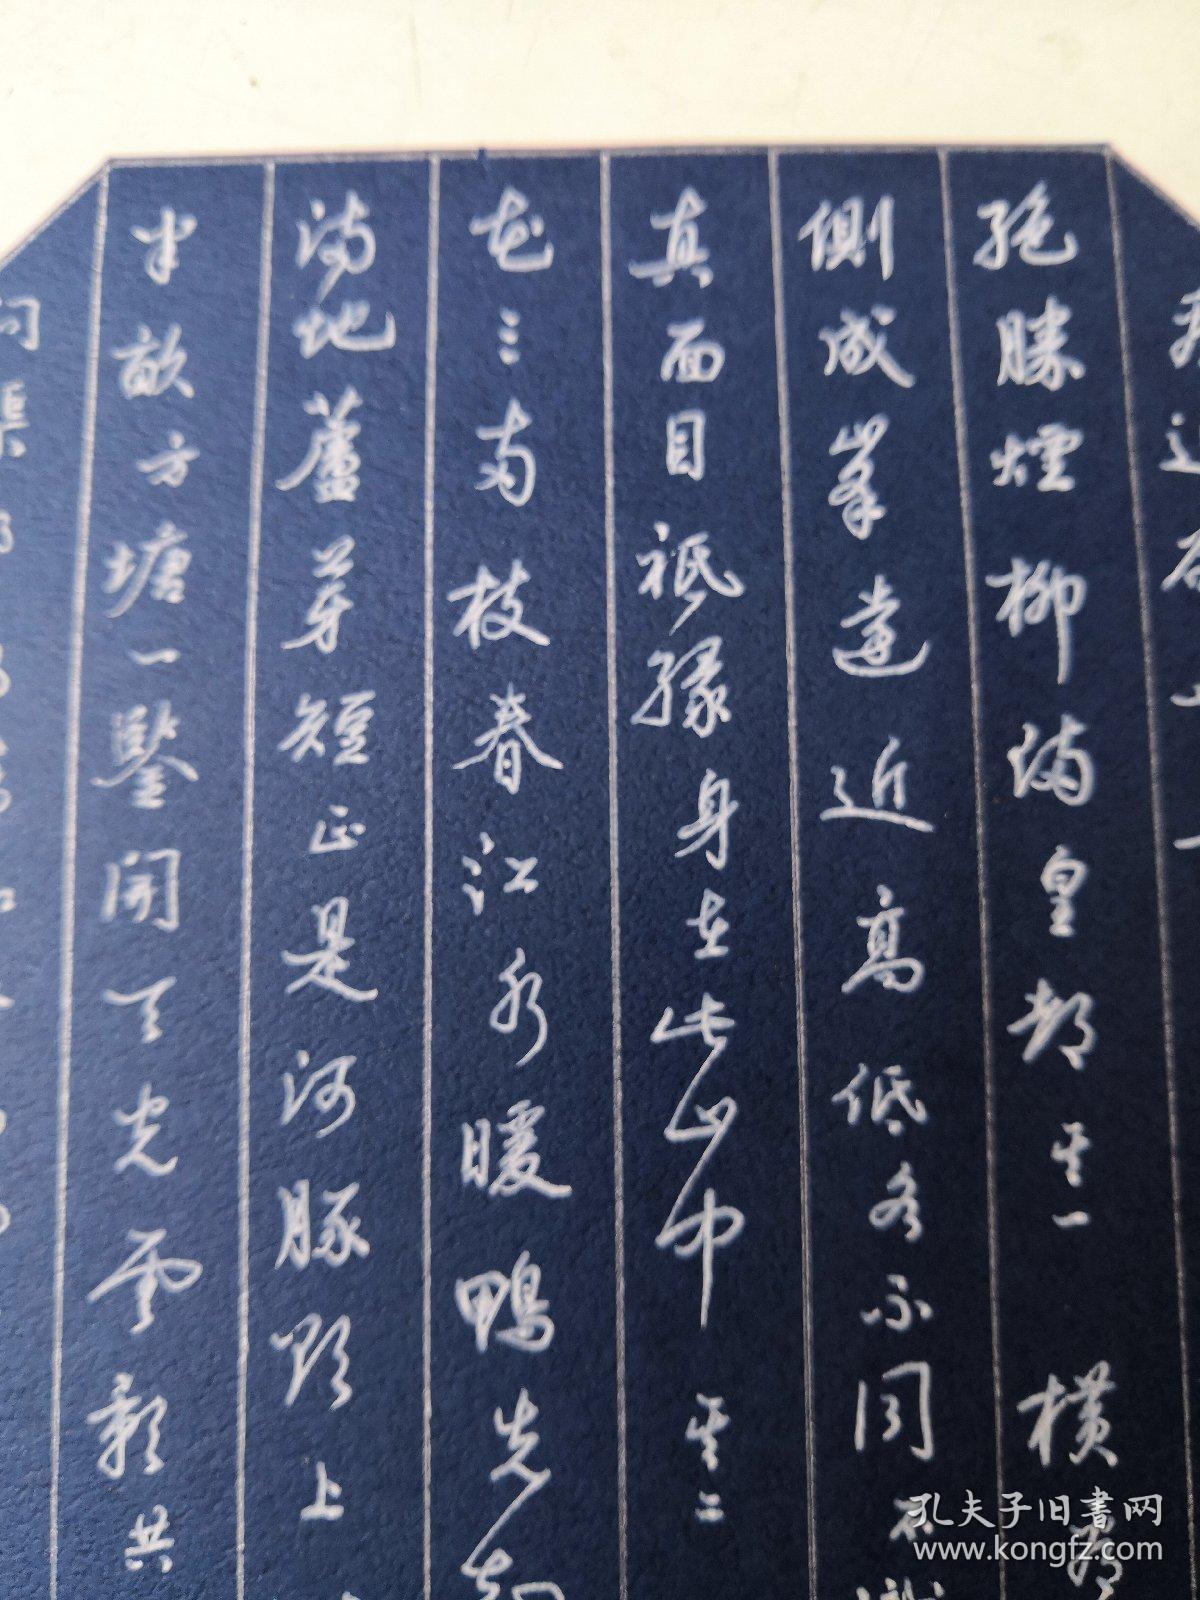 絶勝煙柳滿皇都 其一 橫看
側成峯遠近高低各不同 不識
真面目祗緣身在此山中 其二
花三兩枝春江水暖鴨先知
滿地蘆芽短正是河豚欲上
半畝方塘一鑒開天光雲影共
問渠
孔夫子旧書网
www.kongfz.com